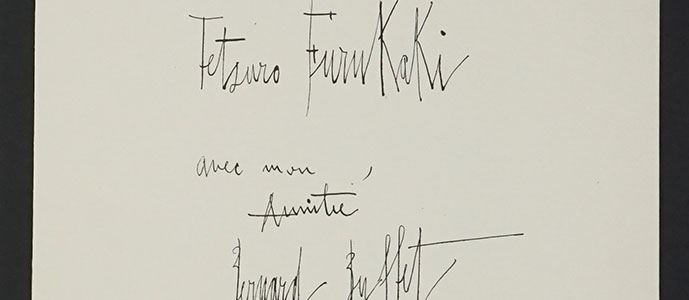 Tetsuro FuruKaKi
avec mon
Amitié
Bernard Buffet